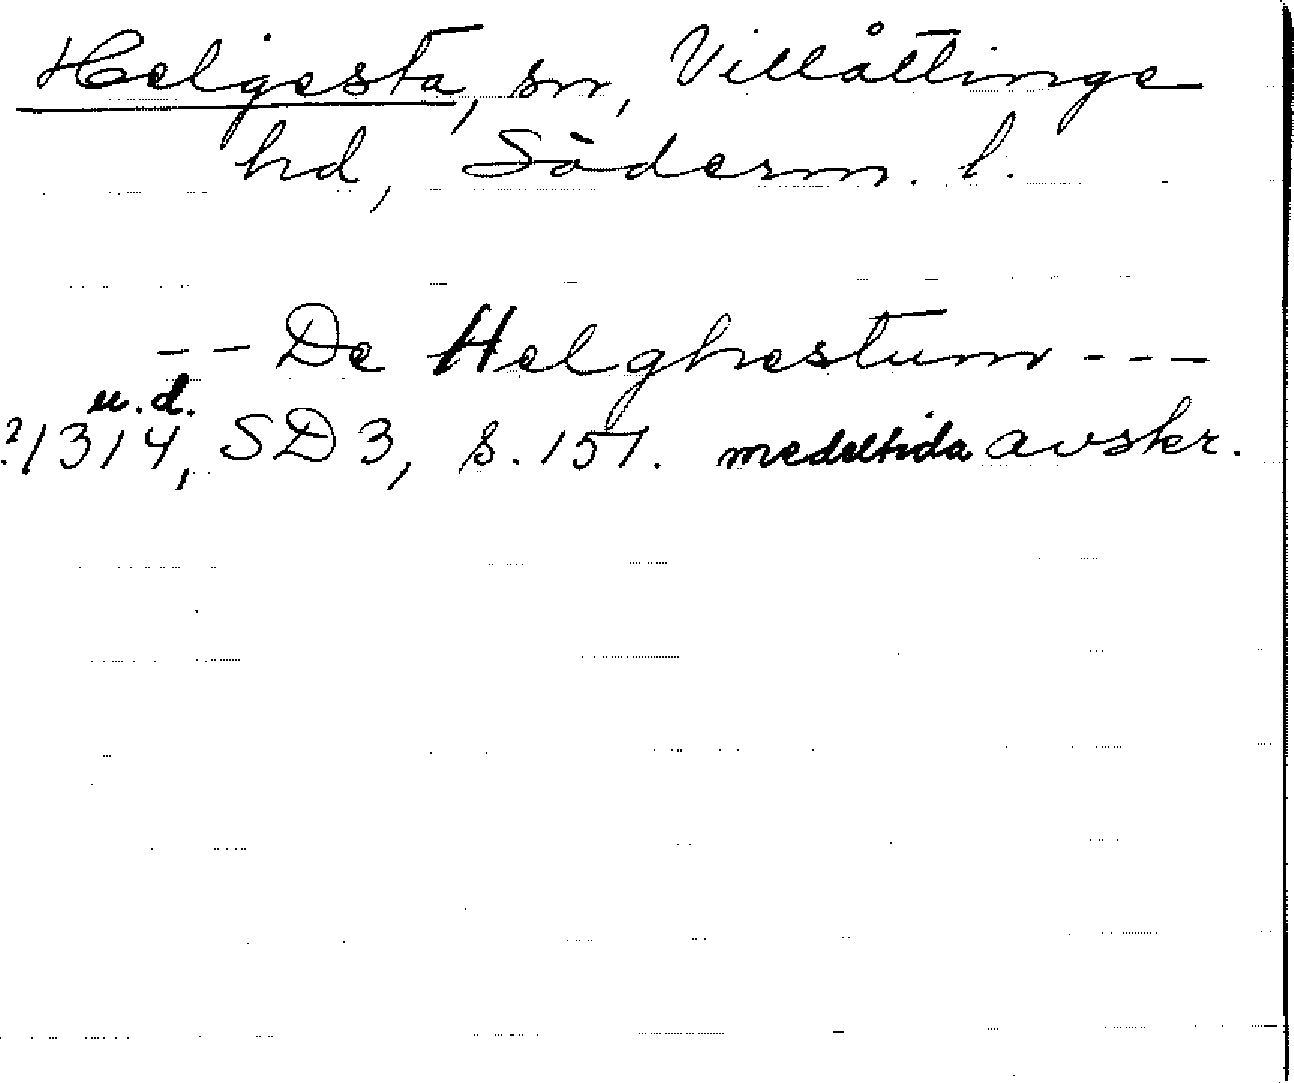 Helgesta, sn, Villåttinge
hd, Söderm. l.
-- De Helghestum ---
u.d.
?1314, SD 3, s. 151. medeltida avskr.